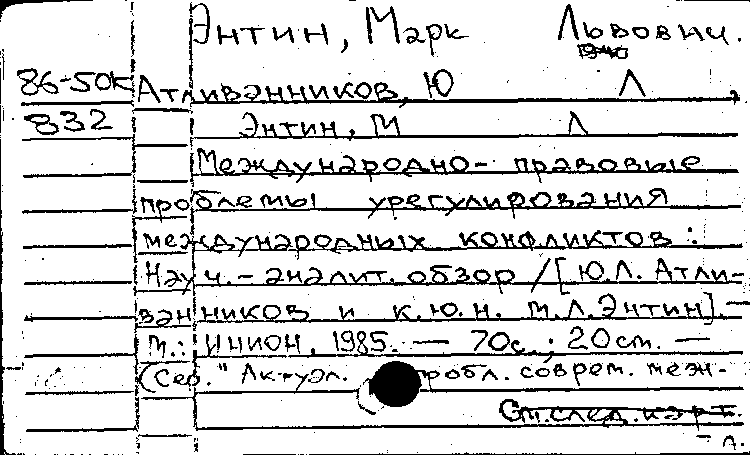 Энтин, Марк Львович.
1940
86-50к Атливанников, Ю Л ,
832 Энтин, М Л
Международно- правовые
проблемы урегулирования
международных конфликтов :
Науч.-аналит. обзор / [Ю.Л. Атли-
ванников и к.ю.н. М.Л.Энтин]. —
М.: ИНИОН, 1985. — 70с.; 20см. —
(Сер. "Актуал. пробл. соврем. меж-
См.след.карт.